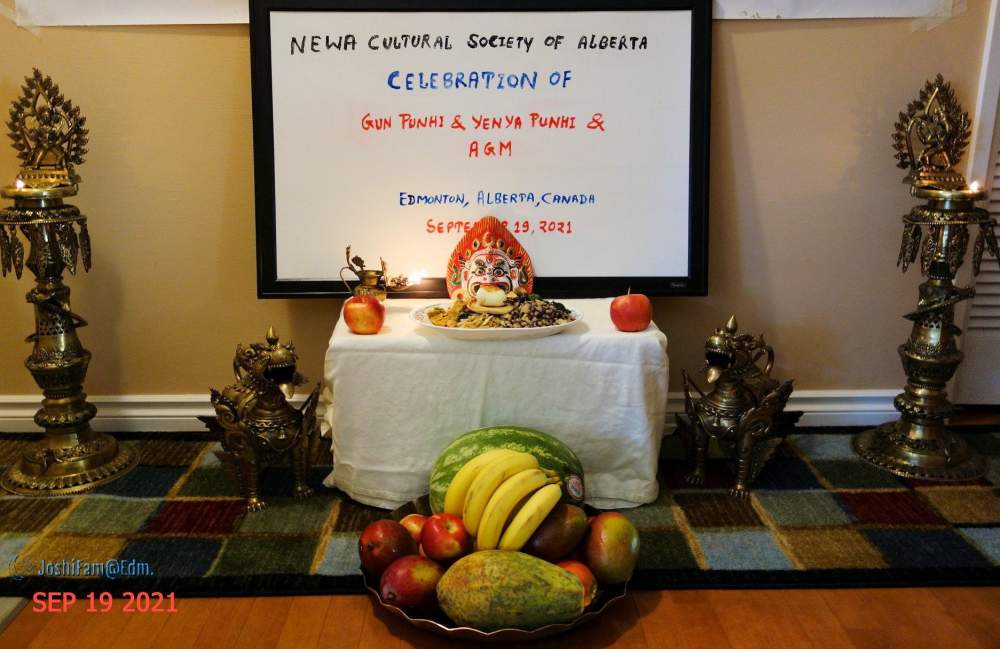 NEWA CULTURAL SOCIETY OF ALBERTA
CELEBRATION OF
GUN PUNHI & YENYA PUNHI &
AGM
EDMONTON, ALBERTA, CANADA
19, 2021
JoshiFam@Edm.
SEP 19 2021